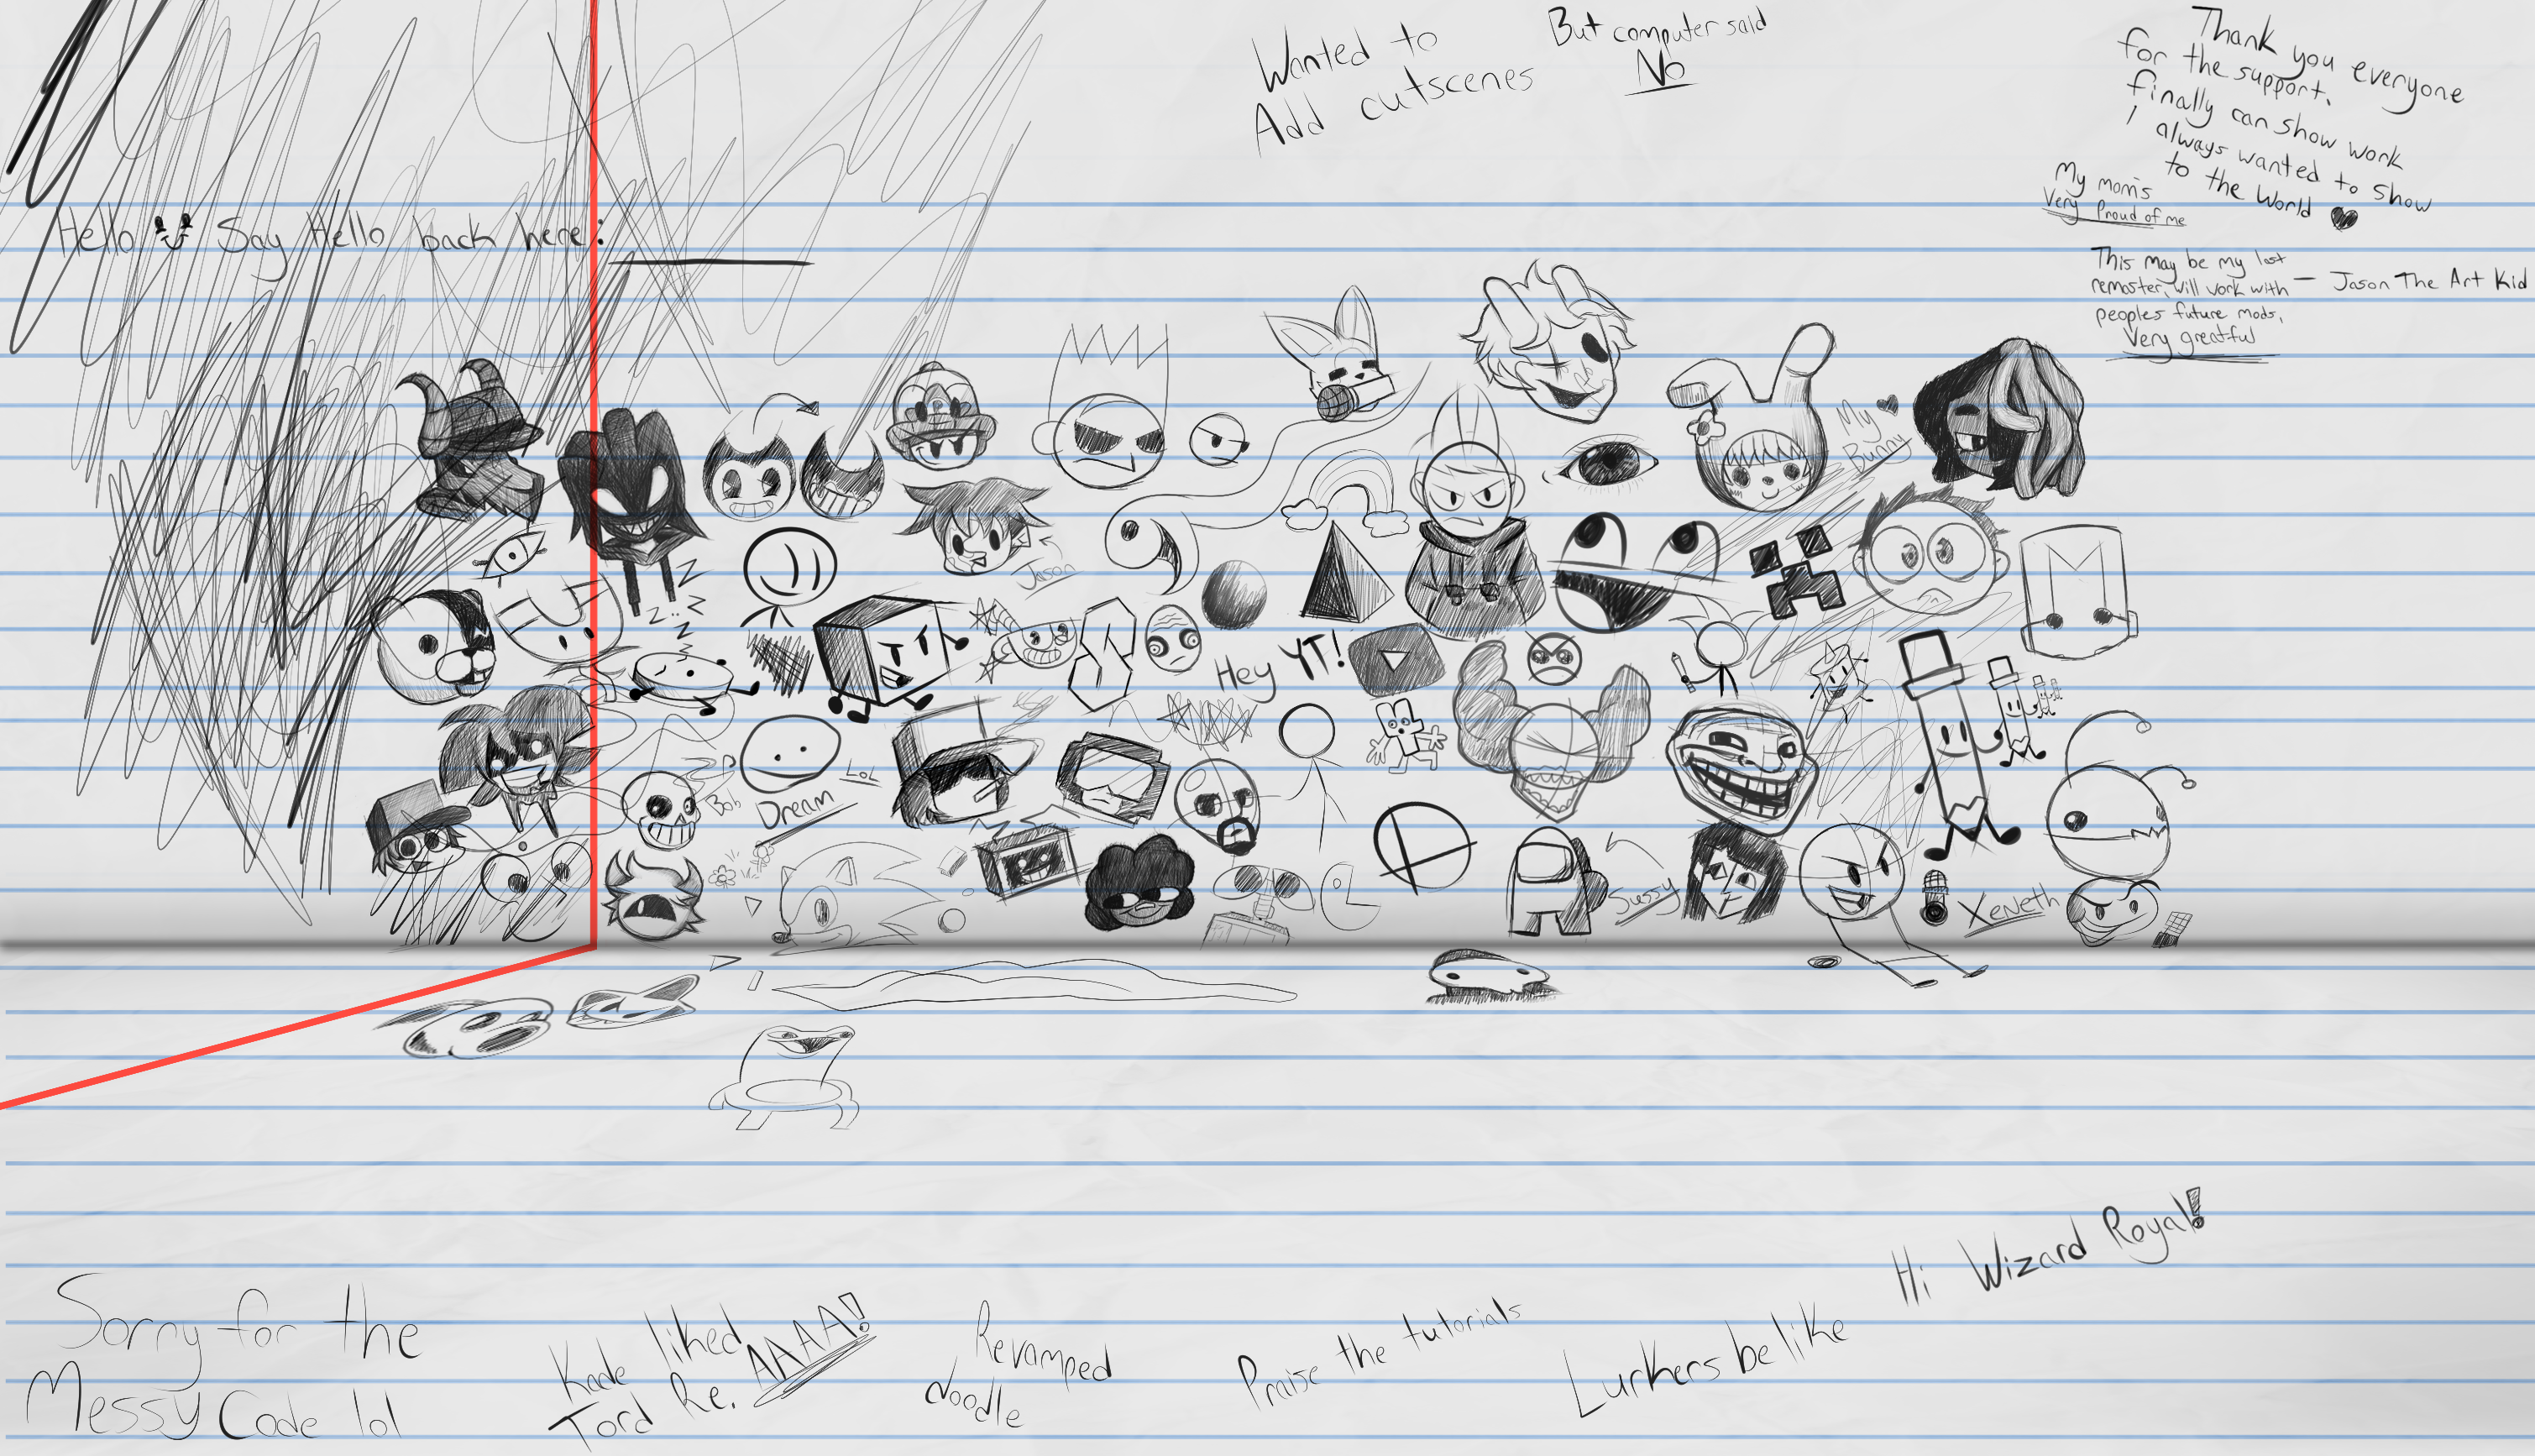 Wanted to
Add cutscenes
But computer said
No
Thank you everyone
for the support.
finally can show work
I always wanted to show
to the World
My mom's
Very Proud of me
Hello Say Hello back here:
This may be my last
remaster, will work with
peoples future mods,
Very greatful
— Jason The Art Kid
My
Bunny
Jason
z z z
Hey YT!
Bob
Dream
LOL
Sussy
Xeneth
Sorry for the
Messy Code lol
Kade liked
Tord Re. AAAA!
Revamped
Noodle
Praise the tutorials
Lurkers be like
Hi Wizard Royal!